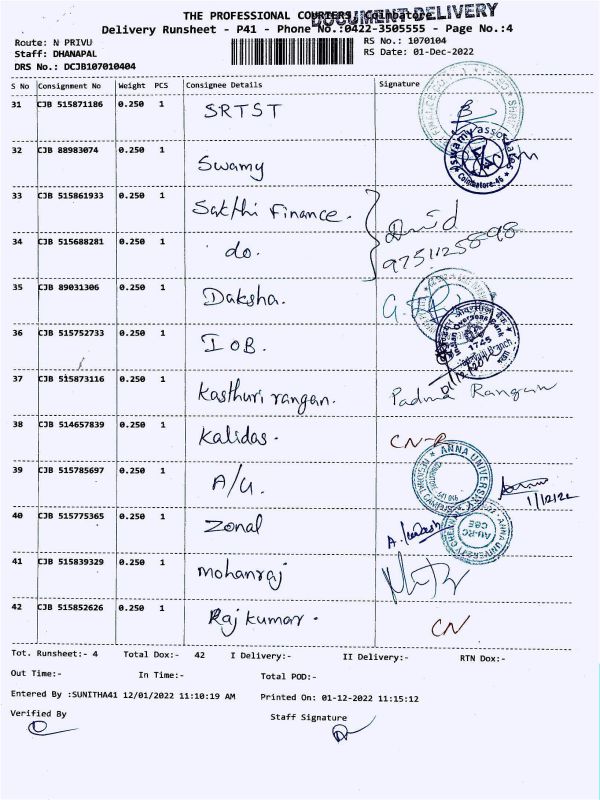 THE PROFESSIONAL COURIERS, Coimbatore
DOCUMENT DELIVERY
Delivery Runsheet - P41 - Phone No.:0422-3505555 - Page No.:4
Route: N PRIVU
RS No.: 1070104
Staff: DHANAPAL
RS Date: 01-Dec-2022
DRS No.: DCJB107010404
S No Consignment No Weight PCS Consignee Details Signature
31 CJB 515871186 0.250 1 SRTST
32 CJB 88983074 0.250 1 Swamy
Swamy associates
Coimbatore-46
33 CJB 515861933 0.250 1 Sakthi Finance.
34 CJB 515688281 0.250 1 do.
9751125898
35 CJB 89031306 0.250 1 Daksha.
36 CJB 515752733 0.250 1 IOB.
Indian Overseas Bank
1745
37 CJB 515873116 0.250 1 Kasthuri rangan. Padma Rangan
38 CJB 514657839 0.250 1 Kalidas. CN-R
39 CJB 515785697 0.250 1 A/U.
ANNA UNIVERSITY
641 046
1/12/22
40 CJB 515775365 0.250 1 Zonal
AU-RC
COE
41 CJB 515839329 0.250 1 mohanraj
42 CJB 515852626 0.250 1 Rajkumar. CN
Tot. Runsheet:- 4 Total Dox:- 42 I Delivery:- II Delivery:- RTN Dox:-
Out Time:- In Time:- Total POD:-
Entered By :SUNITHA41 12/01/2022 11:10:19 AM Printed On: 01-12-2022 11:15:12
Verified By
Staff Signature